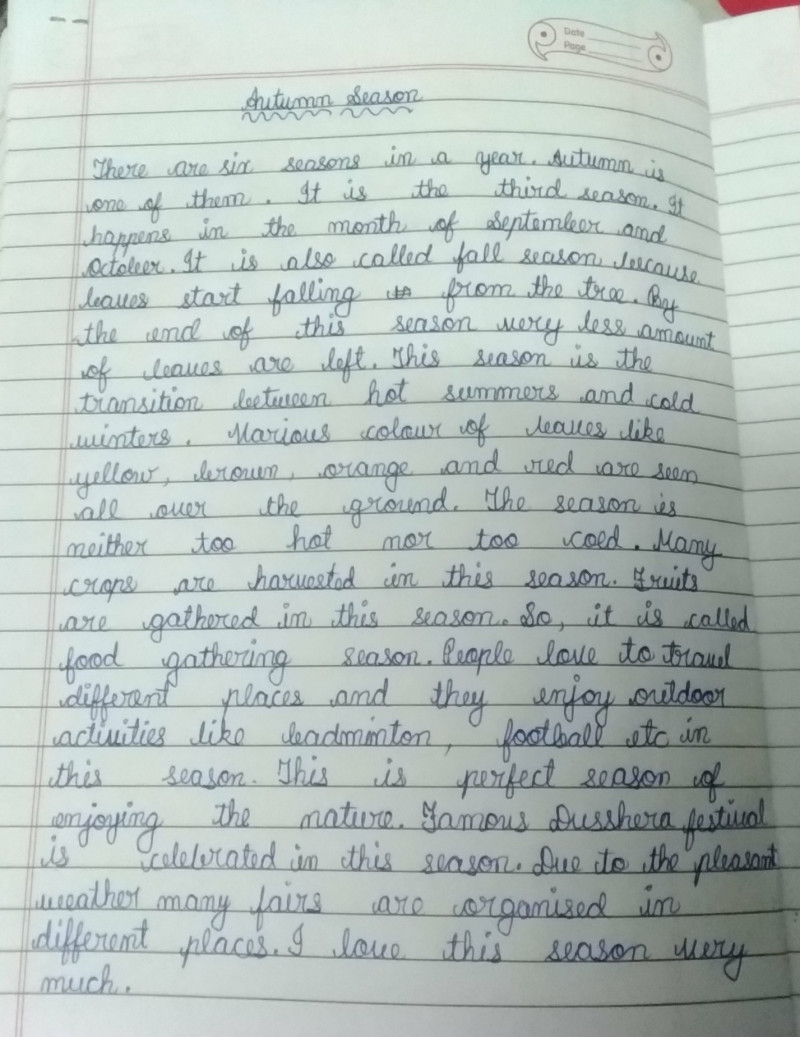 Date
Page
Autumn Season
There are six seasons in a year. Autumn is
one of them. It is the third season. It
happens in the month of September and
October. It is also called fall season because
leaves start falling from the tree. By
the end of this season very less amount
of leaves are left. This season is the
transition between hot summers and cold
winters. Various colour of leaves like
yellow, brown, orange and red are seen
all over the ground. The season is
neither too hot nor too cold. Many
crops are harvested in this season. Fruits
are gathered in this season. So, it is called
food gathering season. People love to travel
different places and they enjoy outdoor
activities like badminton, football etc in
this season. This is perfect season of
enjoying the nature. Famous Dusshera festival
is celebrated in this season. Due to the pleasant
weather many fairs are organised in
different places. I love this season very
much.